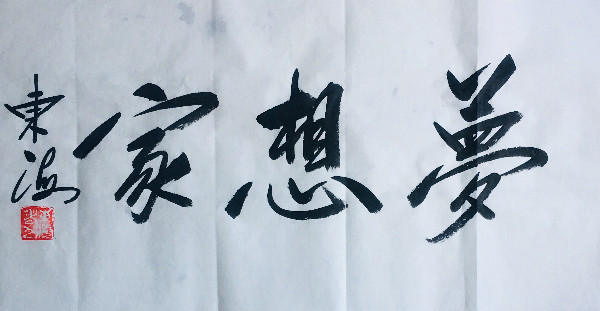 夢想家
東海